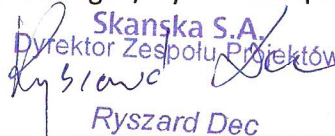 Skanska S.A.
Dyrektor Zespołu Projektów
Ryszard Dec